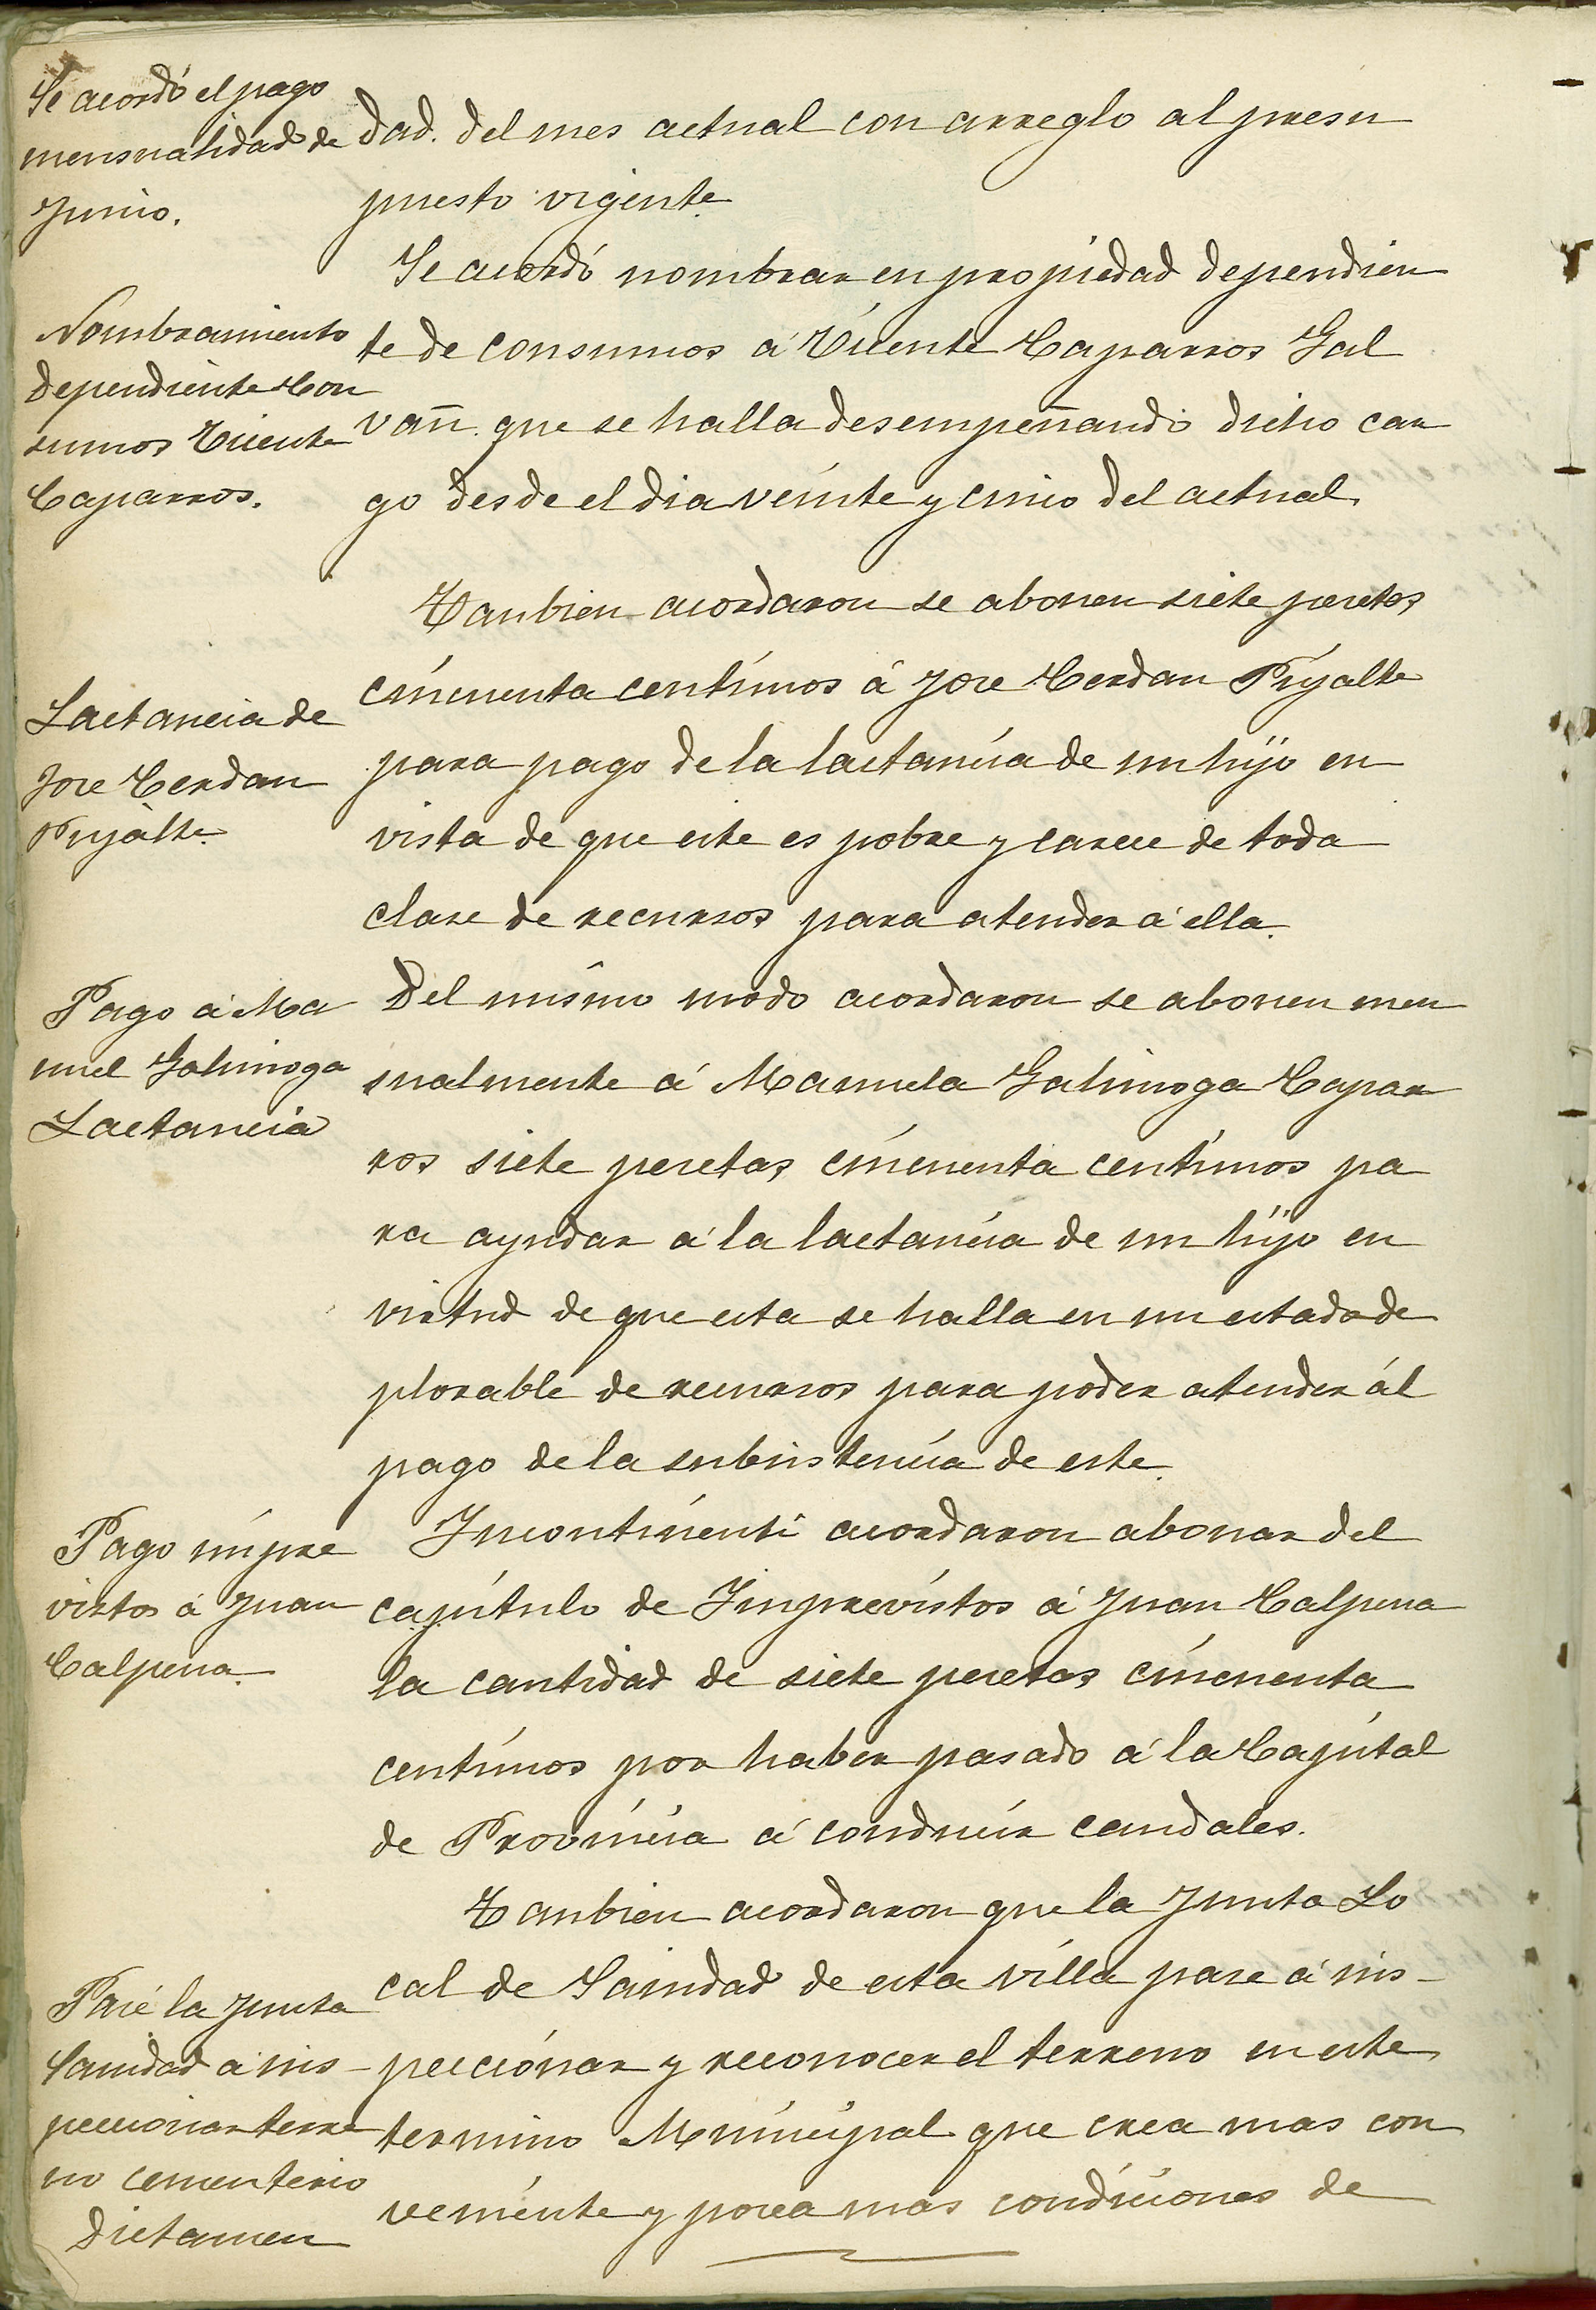 Se acordó el pago
mensualidad de
Junio.
dad. del mes actual con arreglo al presu
puesto vigente.
Nombramiento
dependiente Con
sumos Vicente
Caparros.
Se acordó nombrar en propiedad dependien
te de consumos á Vicente Caparros Gal
vañ. que se halla desempeñando dicho car
go desde el dia veinte y cinco del actual.
Lactancia de
Jose Cerdan
Pujalte.
Tanbien acordaron se abonen siete pesetas
cincuenta centimos á Jose Cerdan Pujalte
para pago de la lactancia de un hijo en
vista de que este es pobre y carece de toda
clase de recursos para atender á ella.
Pago á Ma
nuel Galinoga
Lactancia
Del mismo modo acordaron se abonen men
sualmente á Manuela Galinoga Capar
ros siete pesetas cincuenta centimos pa
ra ayudar á la lactancia de un hijo en
virtud de que esta se halla en un estado de
plorable de recursos para poder atender ál
pago de la subsistencia de este.
Pago inpre
vistos á Juan
Calpena.
Incontinenti acordaron abonar del
capitulo de Imprevistos á Juan Calpena
la cantidad de siete pesetas cincuenta
centimos por haber pasado á la Capital
de Provincia á conducir caudales.
Pase la Junta
Sanidad á ins-
peccionar terre
no cementerio
Dictamen
Tanbien acordaron que la Junta Lo
cal de Sanidad de esta villa pase á ins-
peccionar y reconocer el terreno en este
termino Municipal que crea mas con
veniente y posea mas condiciones de